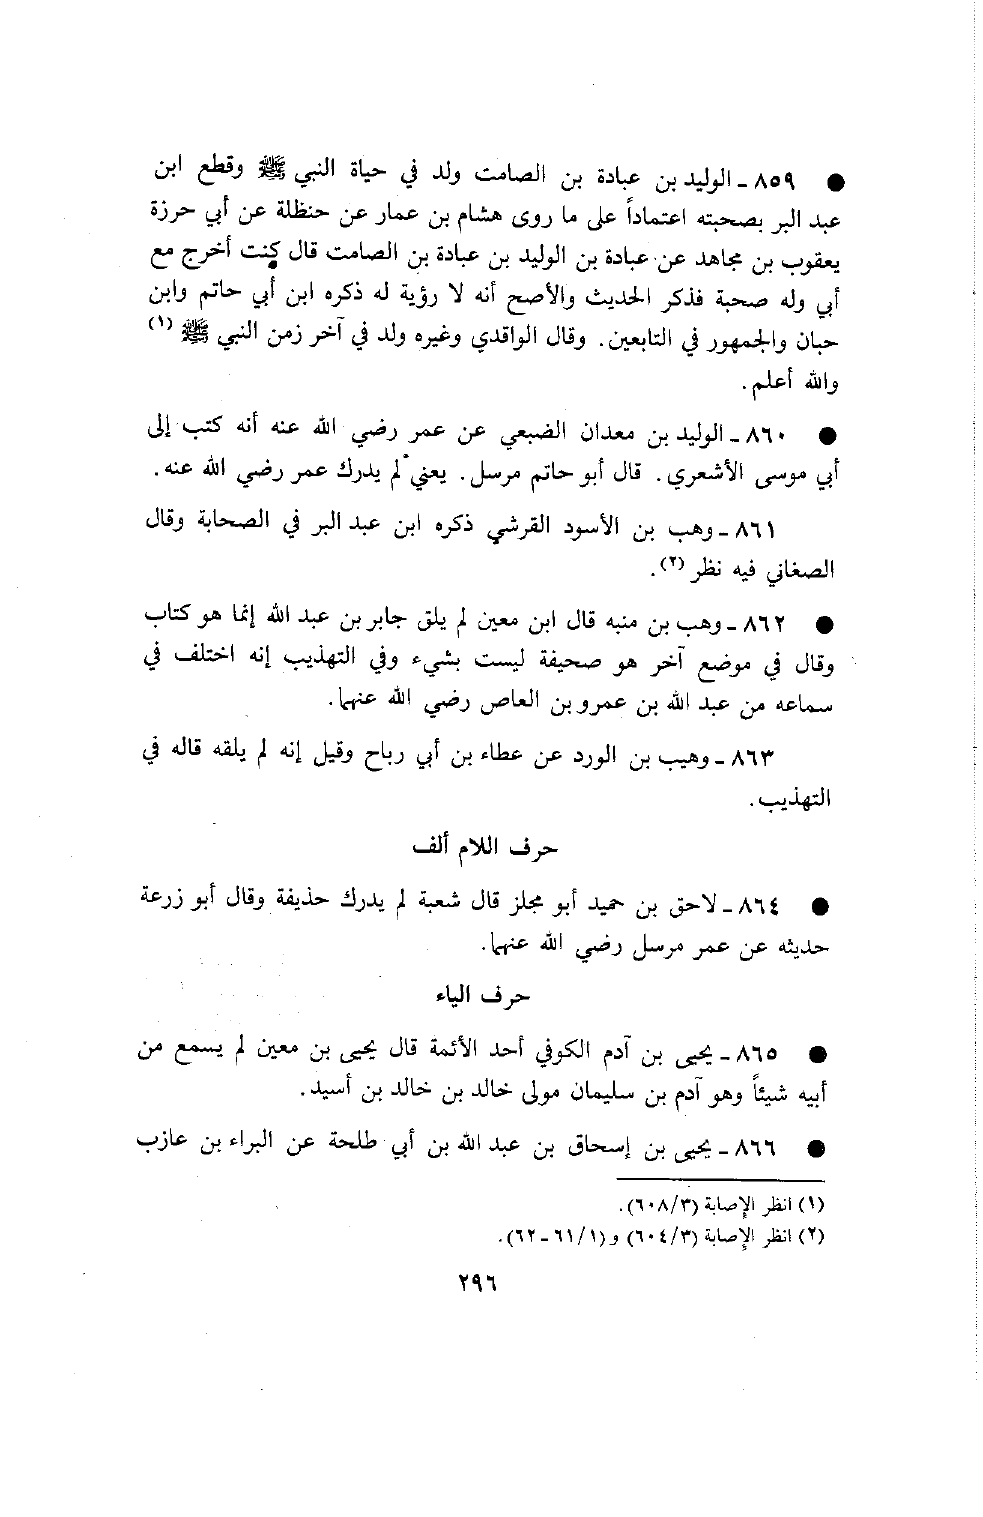 ● ٨٥٩ ـ الوليد بن عبادة بن الصامت ولد في حياة النبي ﷺ وقطع ابن
عبد البر بصحبته اعتماداً على ما روى هشام بن عمار عن حنظلة عن أبي حرزة
يعقوب بن مجاهد عن عبادة بن الوليد بن عبادة بن الصامت قال كنت أخرج مع
أبي وله صحبة فذكر الحديث والأصح أنه لا رؤية له ذكره ابن أبي حاتم وابن
حبان والجمهور في التابعين. وقال الواقدي وغيره ولد في آخر زمن النبي ﷺ (١)
والله أعلم.
● ٨٦٠ ـ الوليد بن معدان الضبعي عن عمر رضي الله عنه أنه كتب إلى
أبي موسى الأشعري. قال أبو حاتم مرسل. يعني لم يدرك عمر رضي الله عنه.
٨٦١ ـ وهب بن الأسود القرشي ذكره ابن عبد البر في الصحابة وقال
الصغاني فيه نظر (٢).
● ٨٦٢ ـ وهب بن منبه قال ابن معين لم يلق جابر بن عبد الله إنما هو كتاب
وقال في موضع آخر هو صحيفة ليست بشيء وفي التهذيب إنه اختلف في
سماعه من عبد الله بن عمرو بن العاص رضي الله عنهما.
٨٦٣ ـ وهيب بن الورد عن عطاء بن أبي رباح وقيل إنه لم يلقه قاله في
التهذيب.
حرف اللام ألف
● ٨٦٤ ـ لاحق بن حميد أبو مجلز قال شعبة لم يدرك حذيفة وقال أبو زرعة
حديثه عن عمر مرسل رضي الله عنهما.
حرف الياء
● ٨٦٥ ـ يحيى بن آدم الكوفي أحد الأئمة قال يحيى بن معين لم يسمع من
أبيه شيئاً وهو آدم بن سليمان مولى خالد بن خالد بن أسيد.
● ٨٦٦ ـ يحيى بن إسحاق بن عبد الله بن أبي طلحة عن البراء بن عازب
(١) انظر الإصابة (٦٠٨/٣).
(٢) انظر الإصابة (٦٠٤/٣) و(٦١/١ ـ ٦٢).
٢٩٦